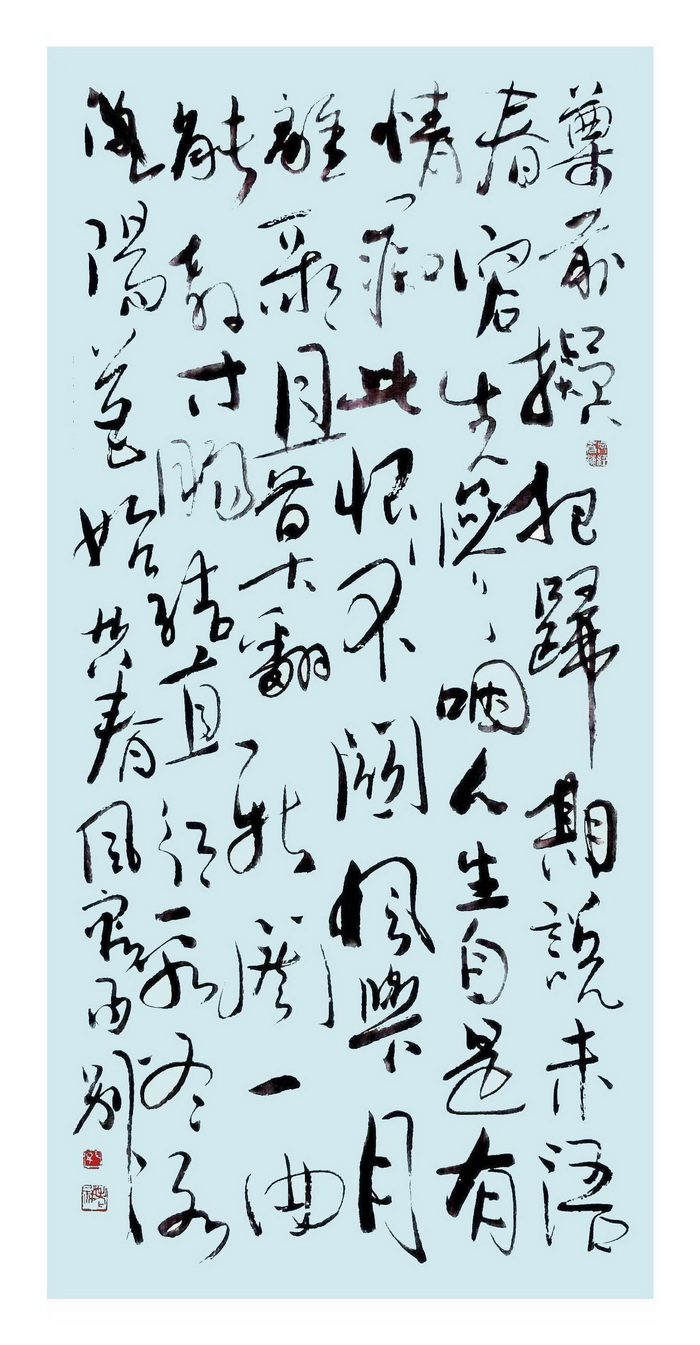 尊前擬把歸期說未語
春容先慘咽人生自是有
情痴此恨不關風與月
離歌且莫翻新闋一曲
能教寸腸結直須看盡洛
陽花始共春風容易別